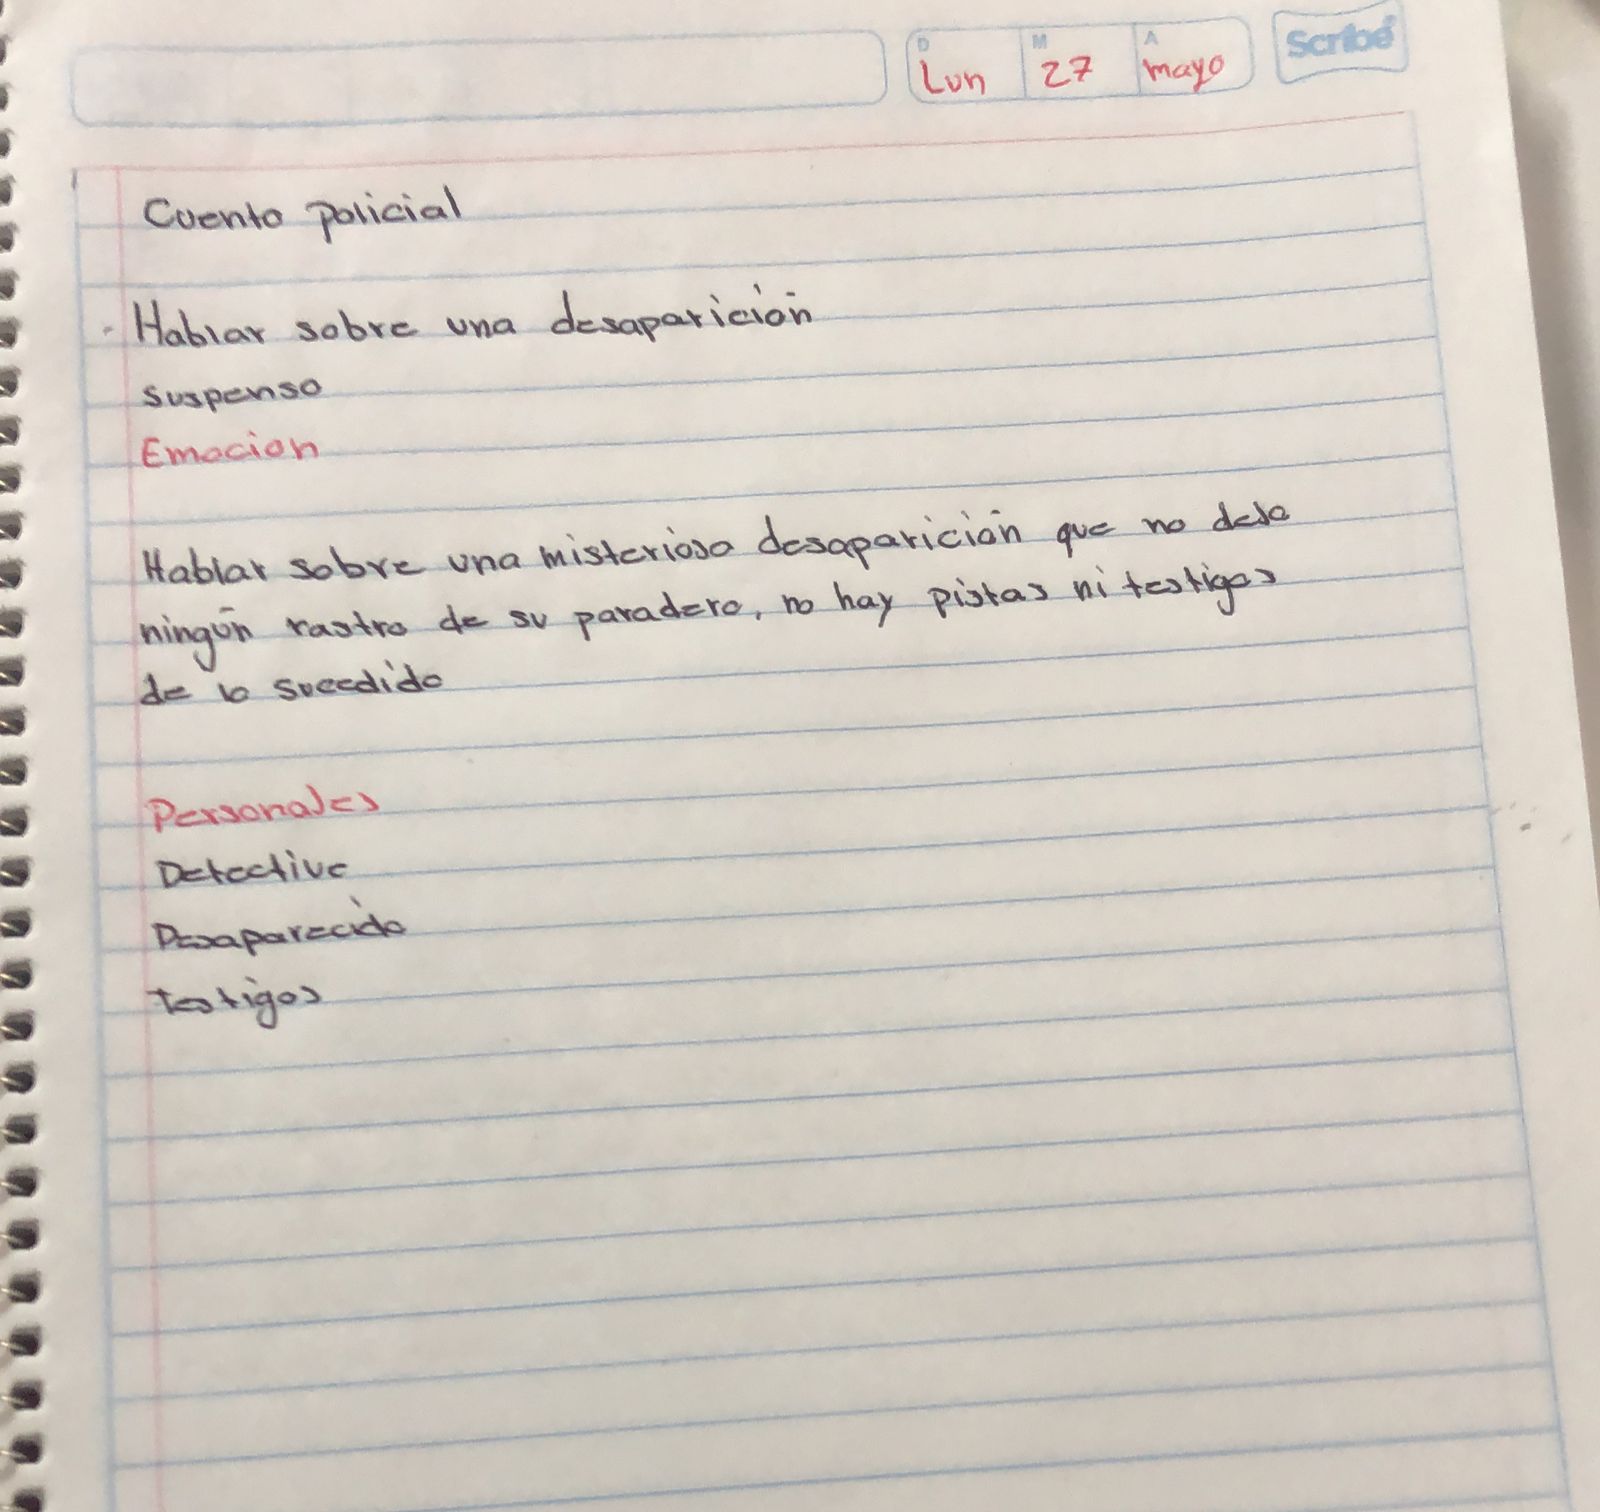 D M A
Lun 27 mayo
Scribe
Cuento policial
Hablar sobre una desaparición
suspenso
Emocion
Hablar sobre una misteriosa desaparición que no deja
ningún rastro de su paradero, no hay pistas ni testigos
de lo sucedido
Personajes
Detective
Desaparecido
Testigos